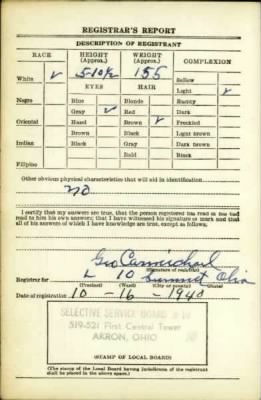 REGISTRAR'S REPORT
DESCRIPTION OF REGISTRANT
RACE HEIGHT (Approx.) WEIGHT (Approx.) COMPLEXION
White ✓ 5-10½ 155 Sallow
EYES HAIR Light ✓
Negro Blue Blonde Ruddy
Gray ✓ Red Dark
Oriental Hazel Brown ✓ Freckled
Brown Black Light brown
Indian Black Gray Dark brown
Bald Black
Filipino
Other obvious physical characteristics that will aid in identification
no
I certify that my answers are true; that the person registered has read or has had
read to him his own answers; that I have witnessed his signature or mark and that
all of his answers of which I have knowledge are true, except as follows:
Geo Carmichael
(Signature of registrar)
Registrar for 10 Summit Ohio
(Precinct) (Ward) (City or county) (State)
Date of registration 10-16-1940
SELECTIVE SERVICE BOARD
519-521 First Central Tower
AKRON, OHIO
(STAMP OF LOCAL BOARD)
(The stamp of the Local Board having jurisdiction of the registrant
shall be placed in the above space.)